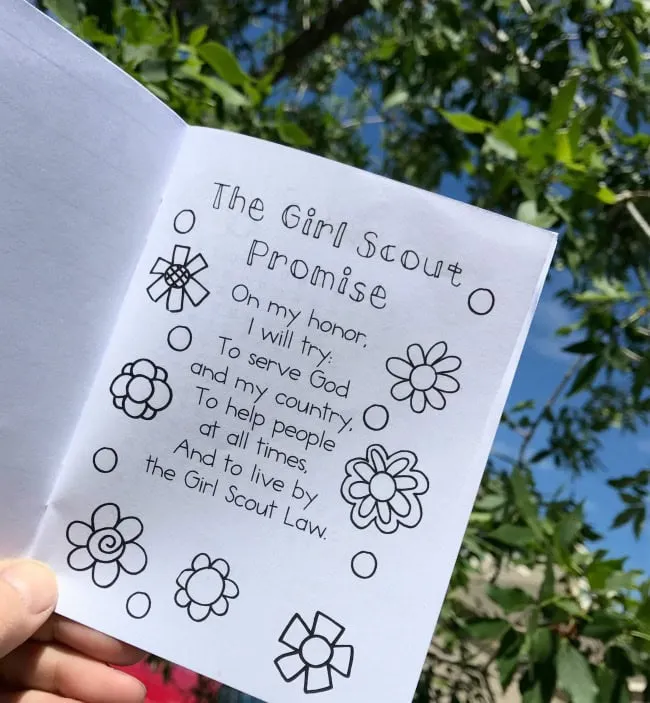 The Girl Scout
Promise
On my honor,
I will try:
To serve God
and my country,
To help people
at all times,
And to live by
the Girl Scout Law.